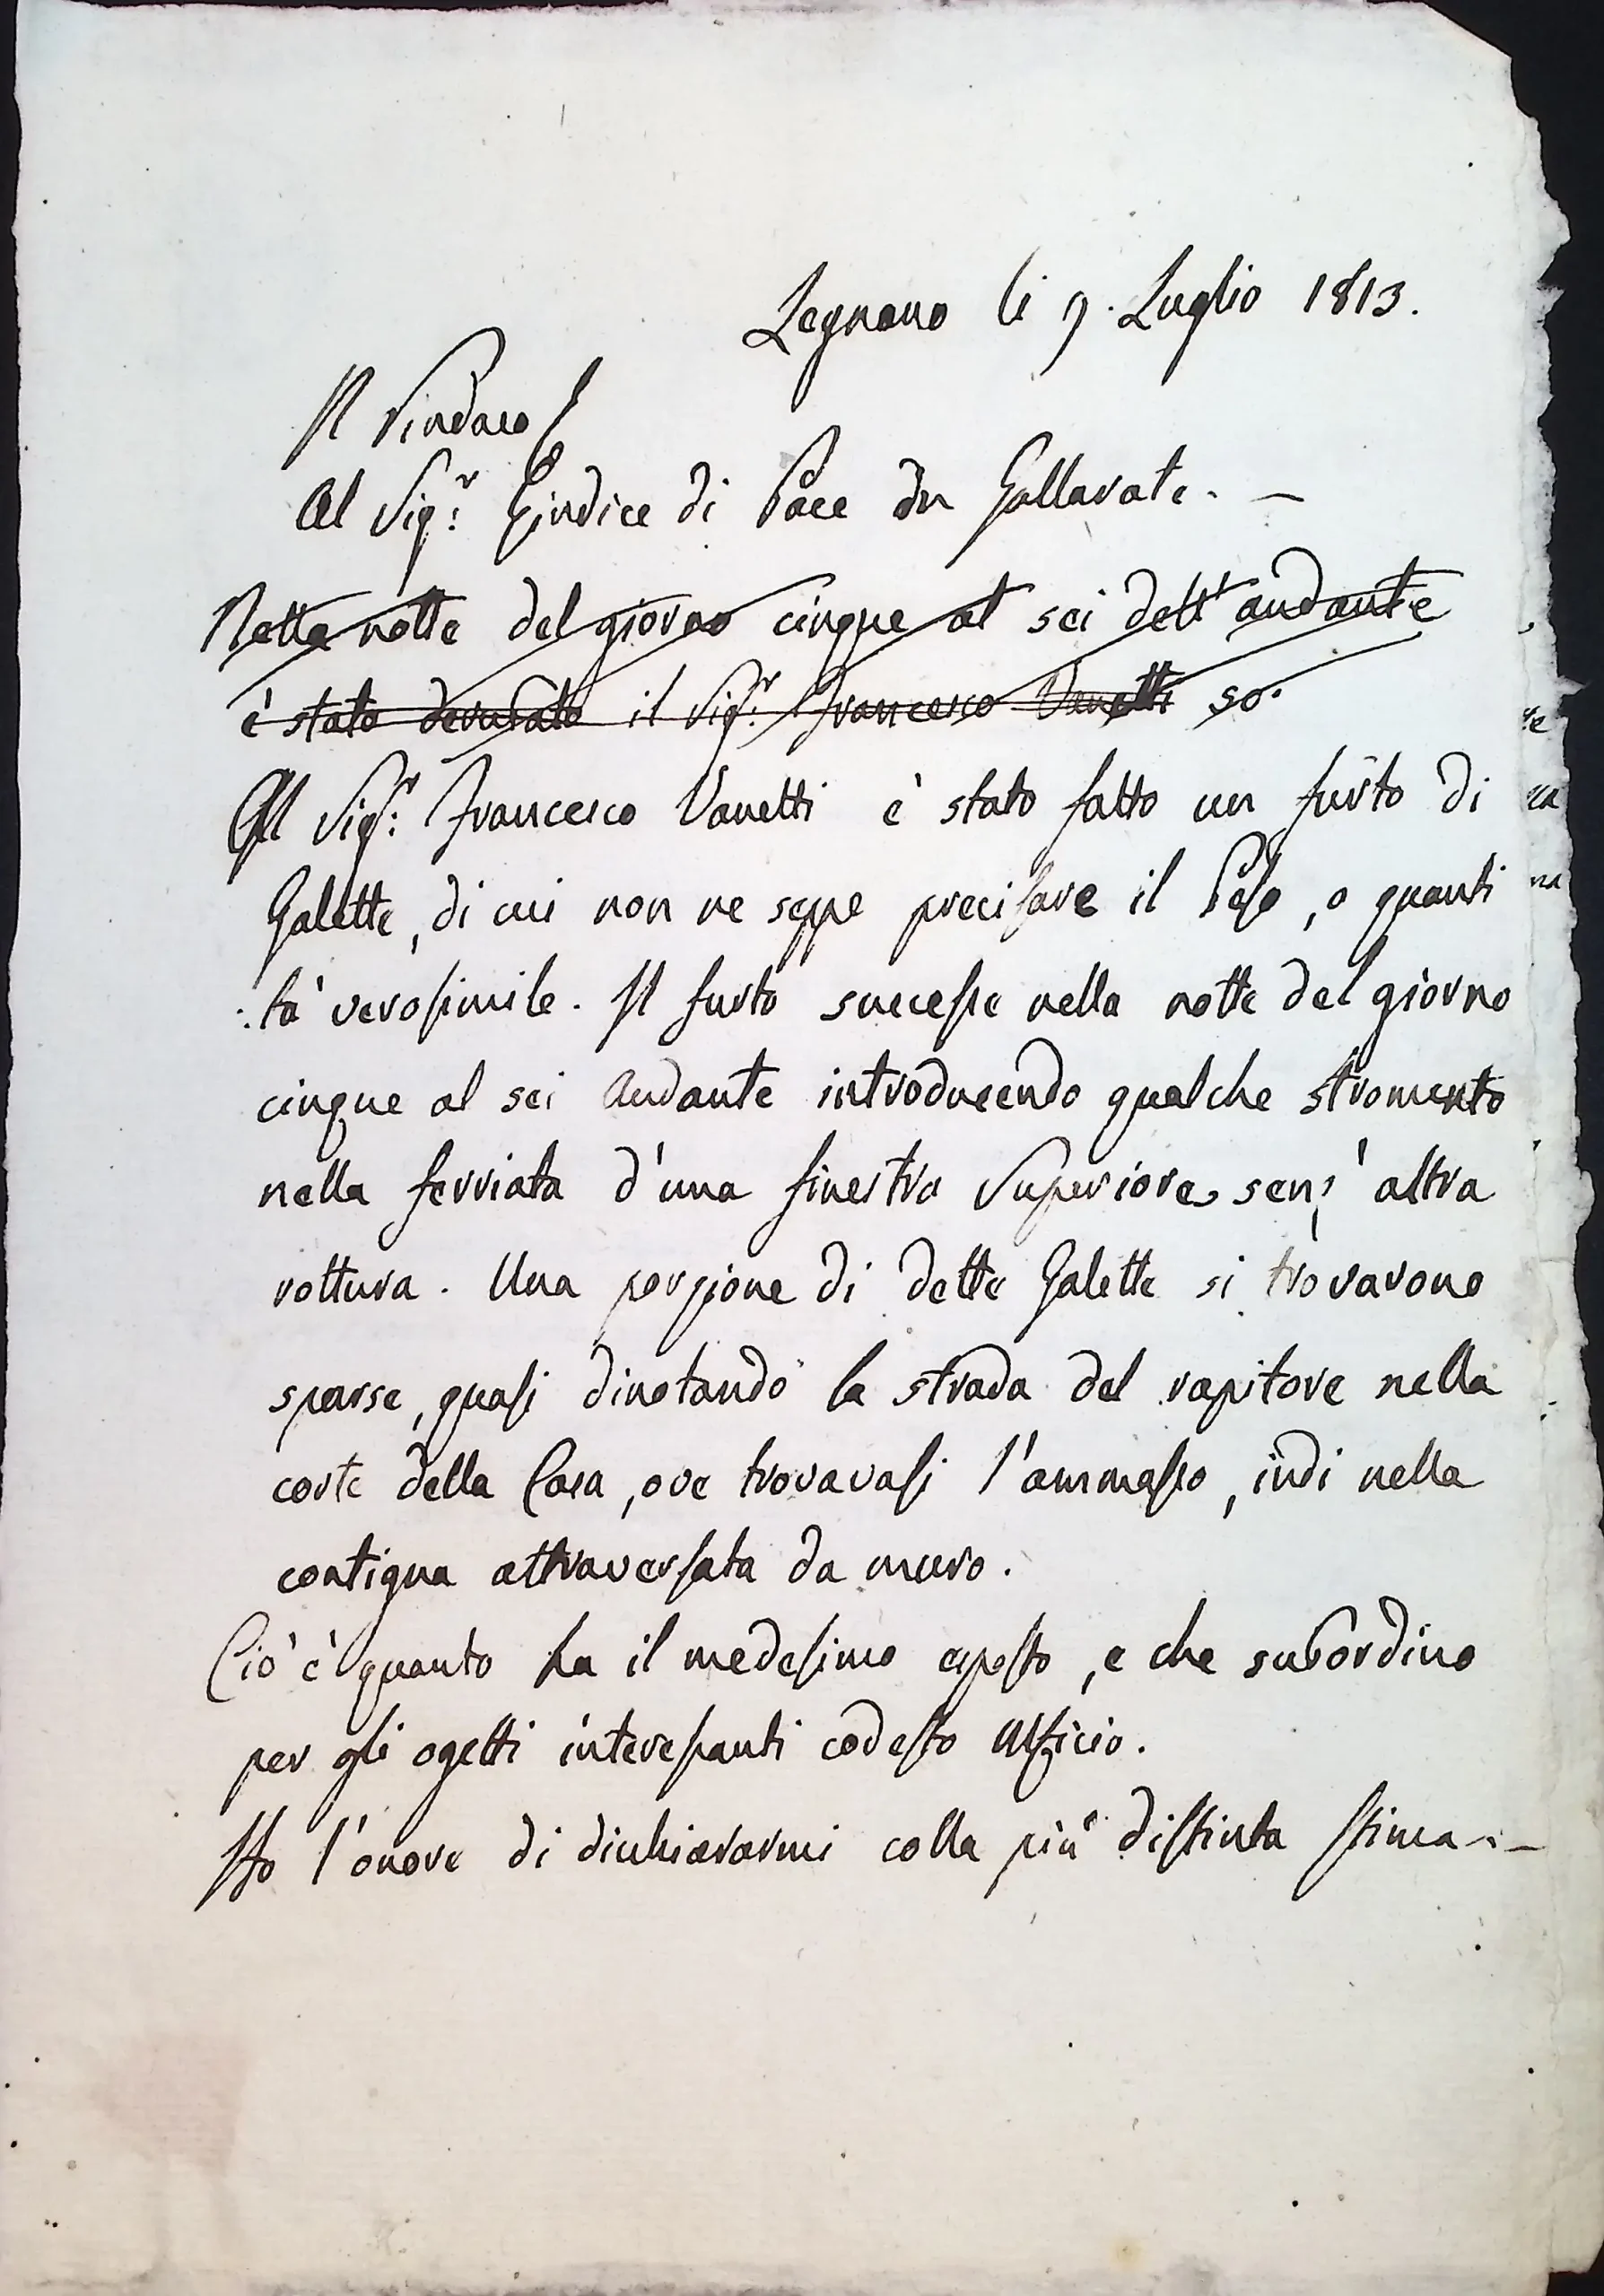 Legnano li 9. Luglio 1813.
Il Sindaco
Al Sig.r Giudice di Pace in Gallarate. —
Nella notte del giorno cinque al sei dell'andante
è stato derubato il Sig.r Francesco Vanetti so.
Al Sig.r Francesco Vanetti è stato fatto un furto di
Galette, di cui non ne seppe precisare il Peso, o quanti
:tà verosimile. Il furto successe nella notte del giorno
cinque al sei Andante introducendo qualche stromento
nella ferriata d'una finestra Superiore senz'altra
rottura. Una porzione di dette Galette si trovarono
sparse, quasi dinotando la strada del rapitore nella
corte della Casa, ove trovavasi l'ammasso, indi nella
contigua attraversata da muro.
Ciò è quanto ha il medesimo esposto, e che subordino
per gli ogetti interessanti codesto Ufficio.
Ho l'onore di dichiararmi colla più distinta stima. —